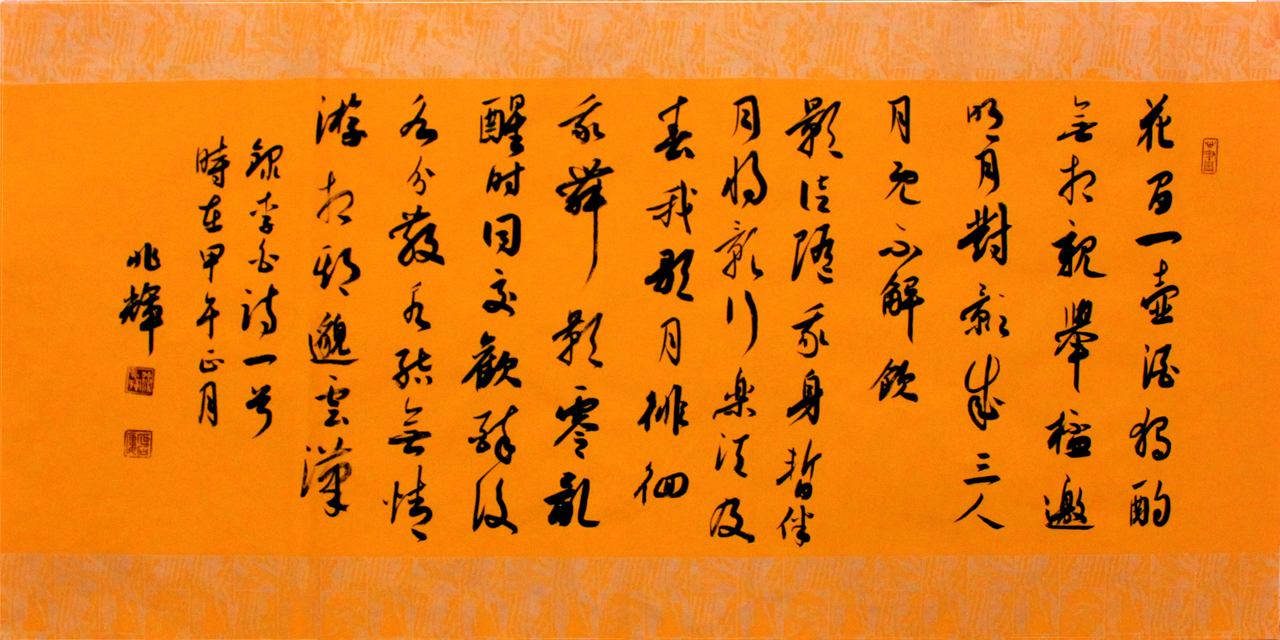 花間一壺酒獨酌
無相親舉邀
明月對影成三人
月既不解飲
影徒隨我身暫伴
月將影行樂須及
春我歌月徘徊
我舞影零亂
醒時同交歡醉後
各分散永結無情
游相期邈雲漢
錄李白詩一首
時在甲午正月
兆輝